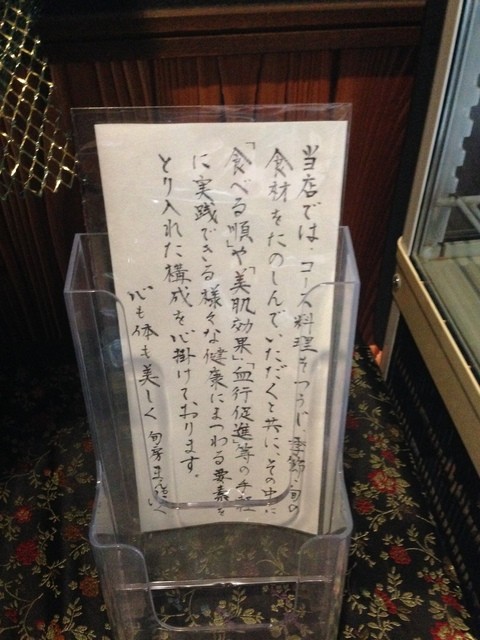 当店では、コース料理をつうじ、季節・旬の
食材をたのしんでいただくと共に、その中に
「食べる順」や「美肌効果」「血行促進」等の手軽
に実践できる様々な健康にまつわる要素を
とり入れた構成を心掛けております。
心も体も美しく 旬房